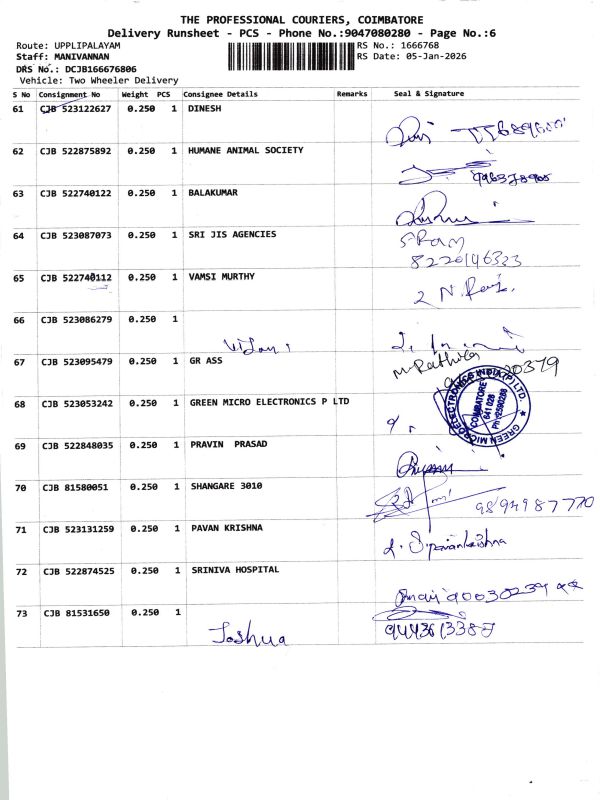 THE PROFESSIONAL COURIERS, COIMBATORE
Delivery Runsheet - PCS - Phone No.:9047080280 - Page No.:6
Route: UPPLIPALAYAM
RS No.: 1666768
Staff: MANIVANNAN
RS Date: 05-Jan-2026
DRS No.: DCJB166676806
Vehicle: Two Wheeler Delivery
S No Consignment No Weight PCS Consignee Details Remarks Seal & Signature
61 CJB 523122627 0.250 1 DINESH
62 CJB 522875892 0.250 1 HUMANE ANIMAL SOCIETY
63 CJB 522740122 0.250 1 BALAKUMAR
64 CJB 523087073 0.250 1 SRI JIS AGENCIES
8220146333
65 CJB 522740112 0.250 1 VAMSI MURTHY
66 CJB 523086279 0.250 1
67 CJB 523095479 0.250 1 GR ASS
68 CJB 523053242 0.250 1 GREEN MICRO ELECTRONICS P LTD
GREEN MICRO ELECTRONICS INDIA (P) LTD.
COIMBATORE
641 028
69 CJB 522848035 0.250 1 PRAVIN PRASAD
70 CJB 81580051 0.250 1 SHANGARE 3010
9894987770
71 CJB 523131259 0.250 1 PAVAN KRISHNA
72 CJB 522874525 0.250 1 SRINIVA HOSPITAL
73 CJB 81531650 0.250 1
Joshua